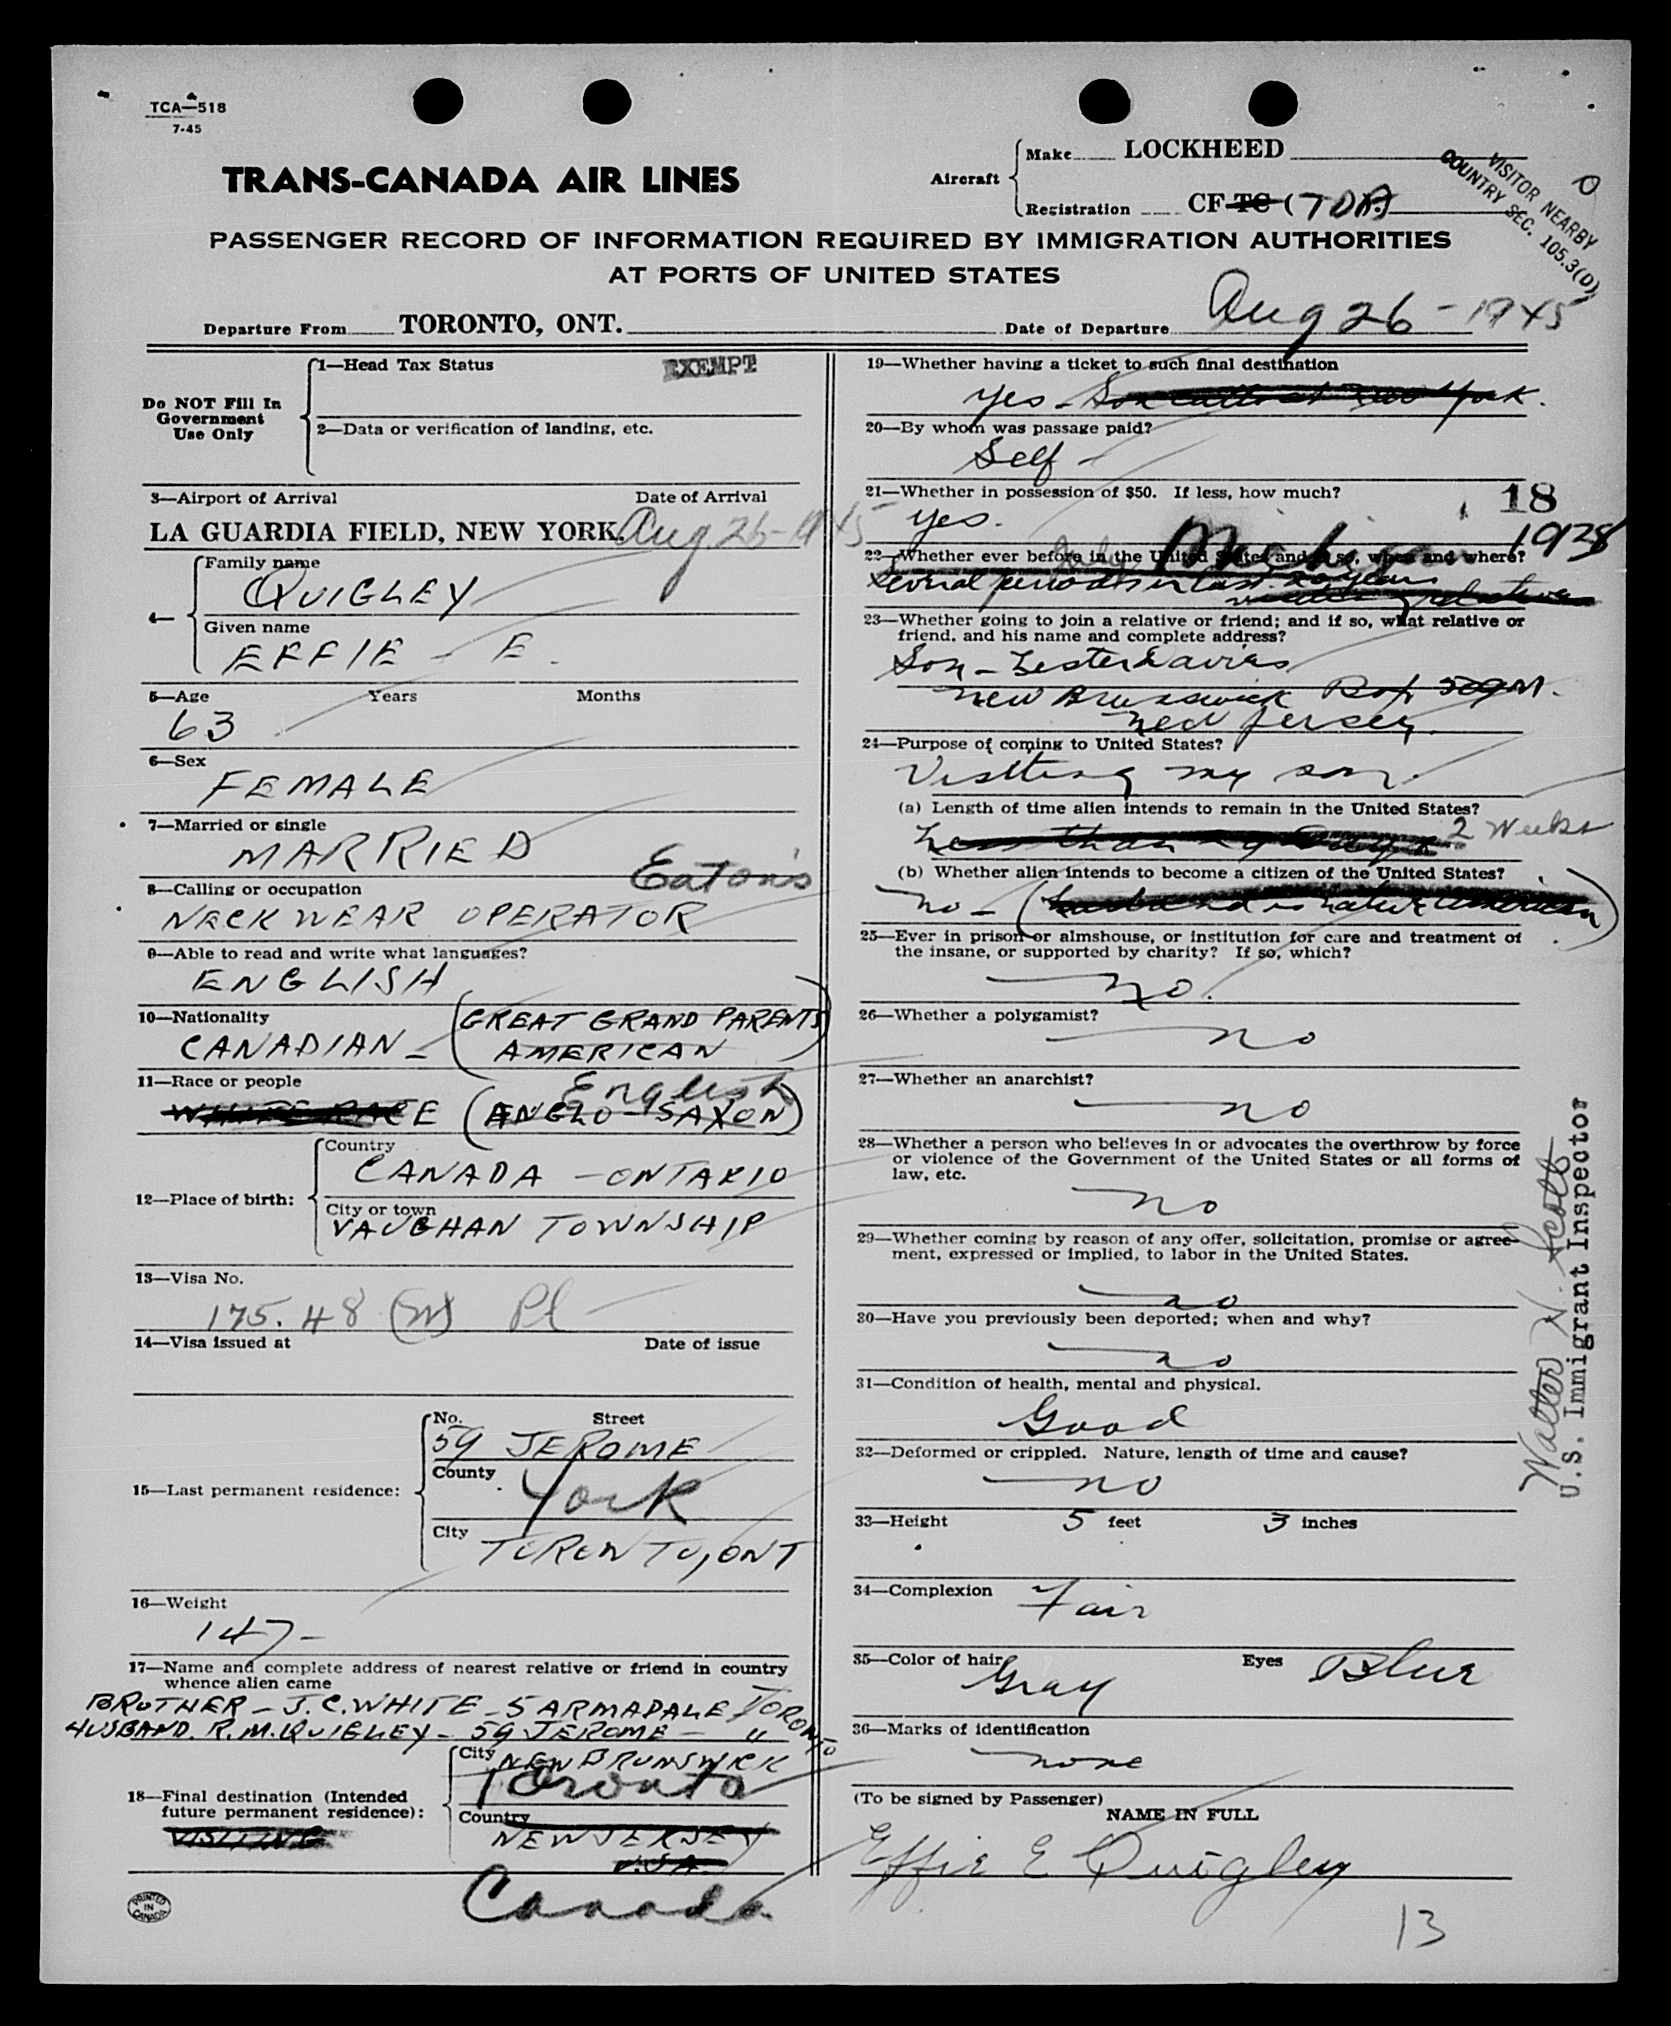 TCA—518
7-45
TRANS-CANADA AIR LINES
Aircraft
Make LOCKHEED
Registration CF-TC (TDA)
VISITOR NEARBY
COUNTRY SEC. 105.3(D)
PASSENGER RECORD OF INFORMATION REQUIRED BY IMMIGRATION AUTHORITIES
AT PORTS OF UNITED STATES
Departure From TORONTO, ONT. Date of Departure Aug 26-1945
Do NOT Fill In
Government
Use Only
1—Head Tax Status EXEMPT
2—Data or verification of landing, etc.
3—Airport of Arrival Date of Arrival
LA GUARDIA FIELD, NEW YORK. Aug 26-1945
4—
Family name
QUIGLEY
Given name
EFFIE - E.
5—Age Years Months
63
6—Sex
FEMALE
7—Married or single
MARRIED
Eaton's
8—Calling or occupation
NECKWEAR OPERATOR
9—Able to read and write what languages?
ENGLISH
10—Nationality
CANADIAN - (GREAT GRAND PARENTS
AMERICAN)
11—Race or people
English
WHITE RACE (ANGLO-SAXON)
12—Place of birth:
Country
CANADA - ONTARIO
City or town
VAUGHAN TOWNSHIP
13—Visa No.
175.48 (W) Pl
14—Visa issued at Date of issue
15—Last permanent residence:
No. Street
59 JEROME
County
York
City
TORONTO, ONT
16—Weight
147-
17—Name and complete address of nearest relative or friend in country
whence alien came
BROTHER - J.C. WHITE - 5 ARMADALE TORONTO
HUSBAND. R.M. QUIGLEY - 59 JEROME - "
18—Final destination (Intended
future permanent residence):
VISITING
City NEW BRUNSWICK
Toronto
Country
NEW JERSEY
U.S.A.
Canada
PRINTED
IN
CANADA
19—Whether having a ticket to such final destination
Yes - Son calls at New York.
20—By whom was passage paid?
Self -
21—Whether in possession of $50. If less, how much?
18
yes.
July Michigan 1938
22—Whether ever before in the United States and if so, when and where?
several periods in last 20 years
relatives
23—Whether going to join a relative or friend; and if so, what relative or
friend, and his name and complete address?
Son - Lester Davies
New Brunswick Box 509 M.
New Jersey.
24—Purpose of coming to United States?
Visiting my son.
(a) Length of time alien intends to remain in the United States?
Less than 29 days 2 weeks
(b) Whether alien intends to become a citizen of the United States?
no - (husband is native American)
25—Ever in prison or almshouse, or institution for care and treatment of
the insane, or supported by charity? If so, which?
no.
26—Whether a polygamist?
no
27—Whether an anarchist?
no
28—Whether a person who believes in or advocates the overthrow by force
or violence of the Government of the United States or all forms of
law, etc.
no
29—Whether coming by reason of any offer, solicitation, promise or agree-
ment, expressed or implied, to labor in the United States.
no
30—Have you previously been deported; when and why?
no
31—Condition of health, mental and physical.
Good
32—Deformed or crippled. Nature, length of time and cause?
no
33—Height 5 feet 3 inches
34—Complexion Fair
35—Color of hair Gray Eyes Blue
36—Marks of identification
none
(To be signed by Passenger)
NAME IN FULL
Effie E Quigley
13
Walter N. Scott
U.S. Immigrant Inspector